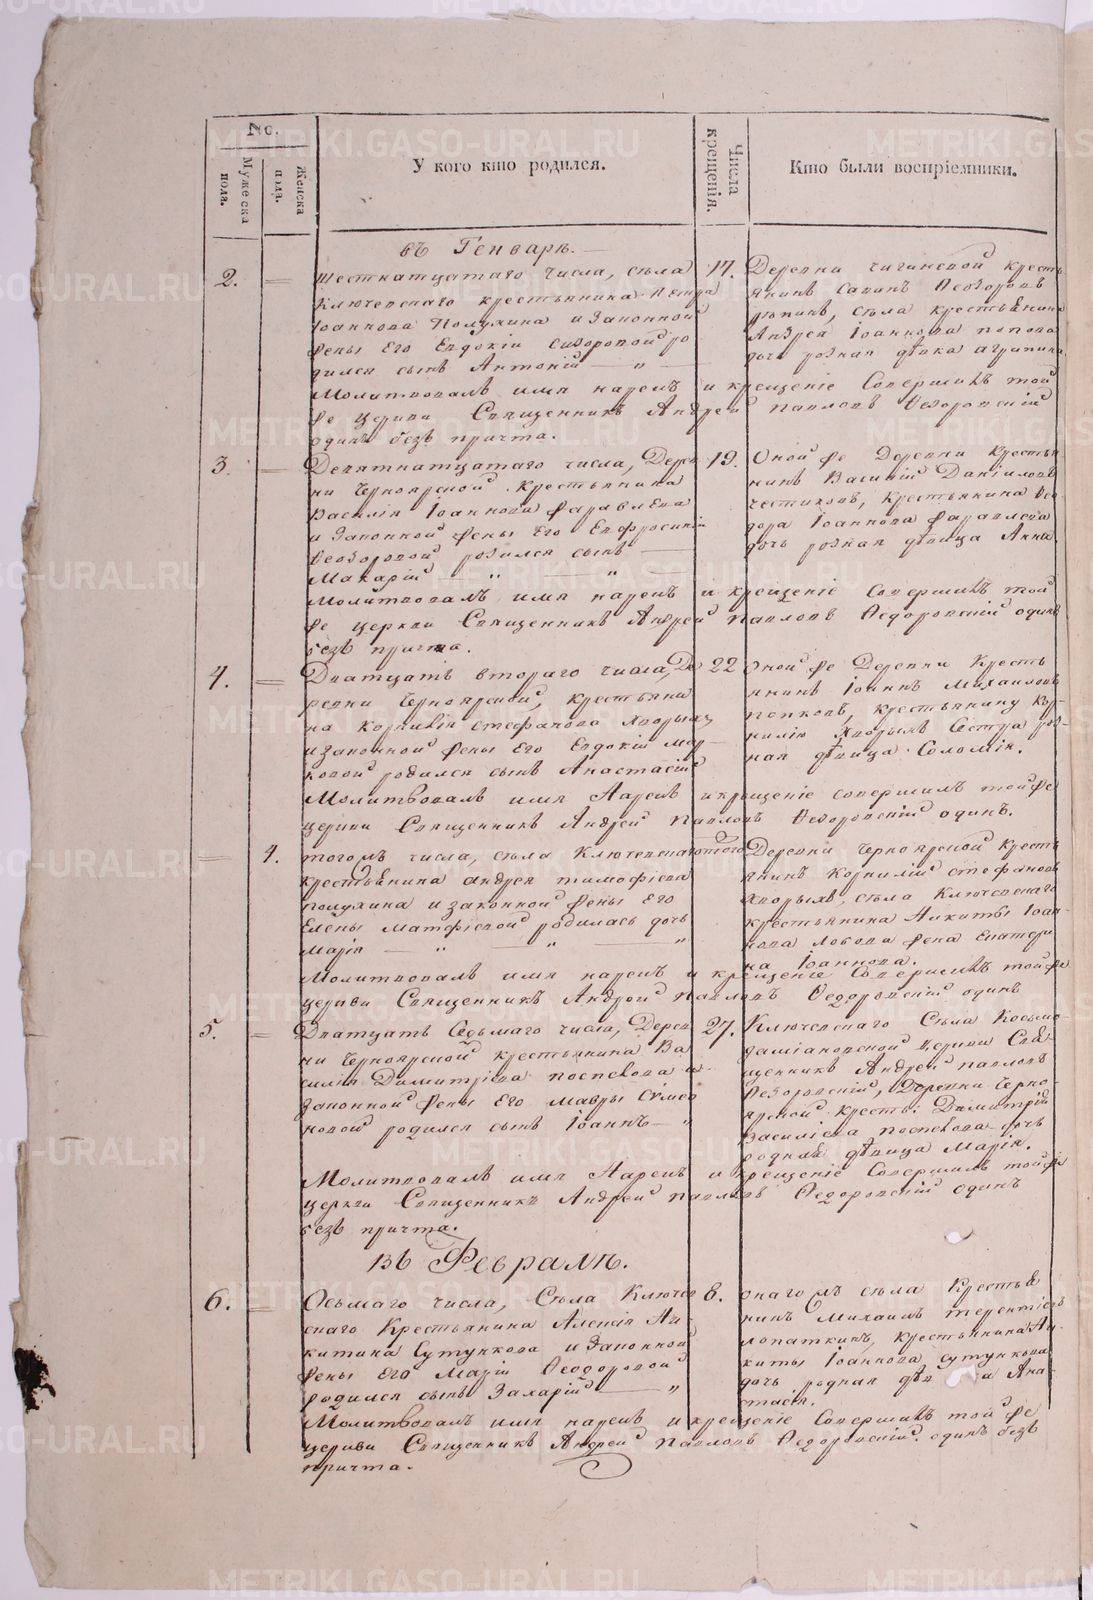 No.
Мужеска пола.
Женска пола.
У кого кто родился.
Числа крещенія.
Кто были воспріемники.
въ Генварѣ.
2. — шестнатцатаго числа, сѣла
Ключевскаго крестьянина Петра
Іоаннова Полухина и Законной
жены Его Евдокіи Сидоровой ро
дился сынъ Антоній — „ —
17. Деревни чигинской кресть
янинъ Савинъ Ѳеодоровъ
сѣла крестьянина
Андрея Іоаннова попова
дочь родная дѣвка агрипина
Молитвовалъ имя нарекъ и крещеніе Совершилъ той
же церкви Священникъ Андрей павловъ Ѳедоровскій
одинъ безъ причта.
3. — Девятнатцатаго числа, Дерев
ни Черноярской крестьянина
Василія Іоаннова фаравлева
и Законной жены Его Евфросиніи
Ѳеодоровой родился сынъ —
Макарій — „ — „ —
19. Оной же Деревни Крестья
нинъ Василій Даніиловъ
честиковъ, крестьянина Ѳео
дора Іоаннова фаравлева
дочь родная дѣвица Анна.
Молитвовалъ имя нарекъ и крещеніе Совершилъ той
же церкви Священникъ Андрей павловъ Ѳедоровскій одинъ
безъ причта.
4. — Дватцать втораго числа, Де
ревни Черноярской, крестьяни
на Корнилія стефанова хворыхъ
и законной жены Его Евдокіи Мар-
ковой родился сынъ Анастасій
22 Оной же Деревни Кресть
янинъ Іоаннъ Михаиловъ
попковъ, крестьянину Кор-
нилію хворыхъ Сестра род-
ная дѣвица Соломія.
Молитвовалъ имя Нарекъ и крещеніе совершилъ той же
церкви Священникъ Андрей павловъ Ѳедоровскій одинъ.
— 1. тогожъ числа, сѣла Ключевскаго
крестьянина андрея тимофіева
полухина и законной жены Его
Елены Матфіевой родилась дочь
Марія — „ — „ — „
того Деревни Черноярской Кресть
янинъ Корнилій стефановъ
хворыхъ, сѣла Ключевскаго
крестьянина Никиты Іоан-
нова лобова жена Екатери
на Іоаннова.
Молитвовалъ имя нарекъ и крещеніе Совершилъ той же
церкви Священникъ Андрей павловъ Ѳедоровскій одинъ
5. — Дватцать Седьмаго числа, Дерев
ни Черноярской крестьянина Ва
силія Димитріева поспелова и
законной жены Его Мавры Симео
новой родился сынъ Іоаннъ — „
27. Ключевскаго Сѣла Косьмо
даміановской церкви Свя
щенникъ Андрей павловъ
Ѳедоровскій, Деревни Черно-
ярской крестья: Димитрія
Василіева поспелова дочь
родная дѣвица Марія.
Молитвовалъ имя Нарекъ и крещеніе Совершилъ той же
церкви Священникъ Андрей павловъ Ѳедоровскій одинъ
безъ причта.
Въ Февралѣ.
6. — Осьмаго числа, Сѣла Ключев
скаго Крестьянина Алексія Ни-
китина Сутункова и Законной
жены Его Маріи Ѳеодоровой
родился сынъ Захарій — „
8. онагожъ сѣла Крестья
нинъ Михаилъ терентіевъ
лопаткинъ, крестьянина Ни-
киты Іоаннова сутункова
дочь родная Ана-
стасія.
Молитвовалъ имя нарекъ и крещеніе Совершилъ той же
церкви Священникъ Андрей Павловъ Ѳедоровскій одинъ безъ
причта.
METRIKI.GASO-URAL.RU